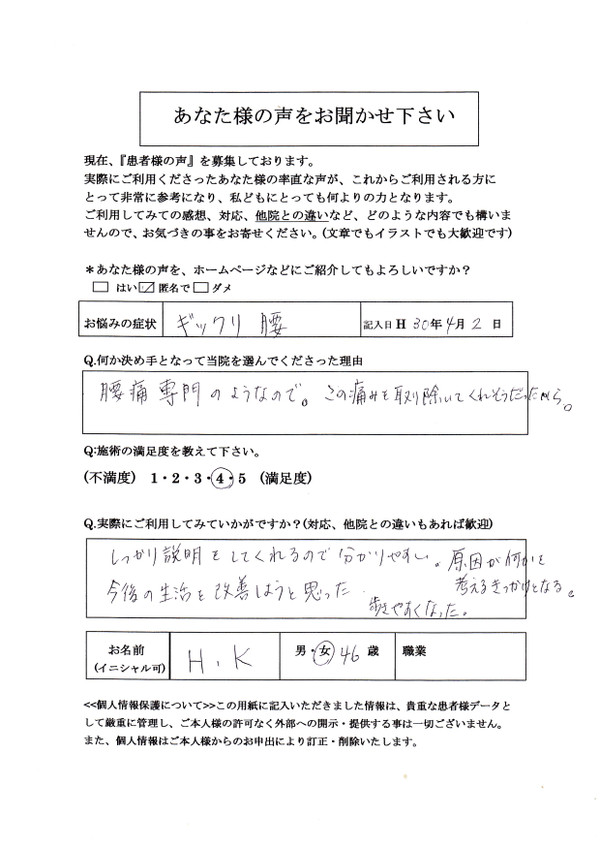 あなた様の声をお聞かせ下さい
現在、『患者様の声』を募集しております。
実際にご利用くださったあなた様の率直な声が、これからご利用される方に
とって非常に参考になり、私どもにとっても何よりの力となります。
ご利用してみての感想、対応、他院との違いなど、どのような内容でも構いま
せんので、お気づきの事をお寄せください。(文章でもイラストでも大歓迎です)
＊あなた様の声を、ホームページなどにご紹介してもよろしいですか？
□ はい ☑ 匿名で □ ダメ
お悩みの症状 ギックリ腰 記入日 H 30年 4月 2 日
Q.何か決め手となって当院を選んでくださった理由
腰痛専門のようなので。この痛みを取り除いてくれそうだったから。
Q:施術の満足度を教えて下さい。
(不満度) 1・2・3・4・5 (満足度)
Q.実際にご利用してみていかがですか？(対応、他院との違いもあれば歓迎)
しっかり説明をしてくれるので分かりやすい。原因が何かを
考えるきっかけとなる。
今後の生活を改善しようと思った
歩きやすくなった。
お名前 H.K 男・女 46 歳 職業
(イニシャル可)
<<個人情報保護について>>この用紙に記入いただきました情報は、貴重な患者様データと
して厳重に管理し、ご本人様の許可なく外部への開示・提供する事は一切ございません。
また、個人情報はご本人様からのお申出により訂正・削除いたします。